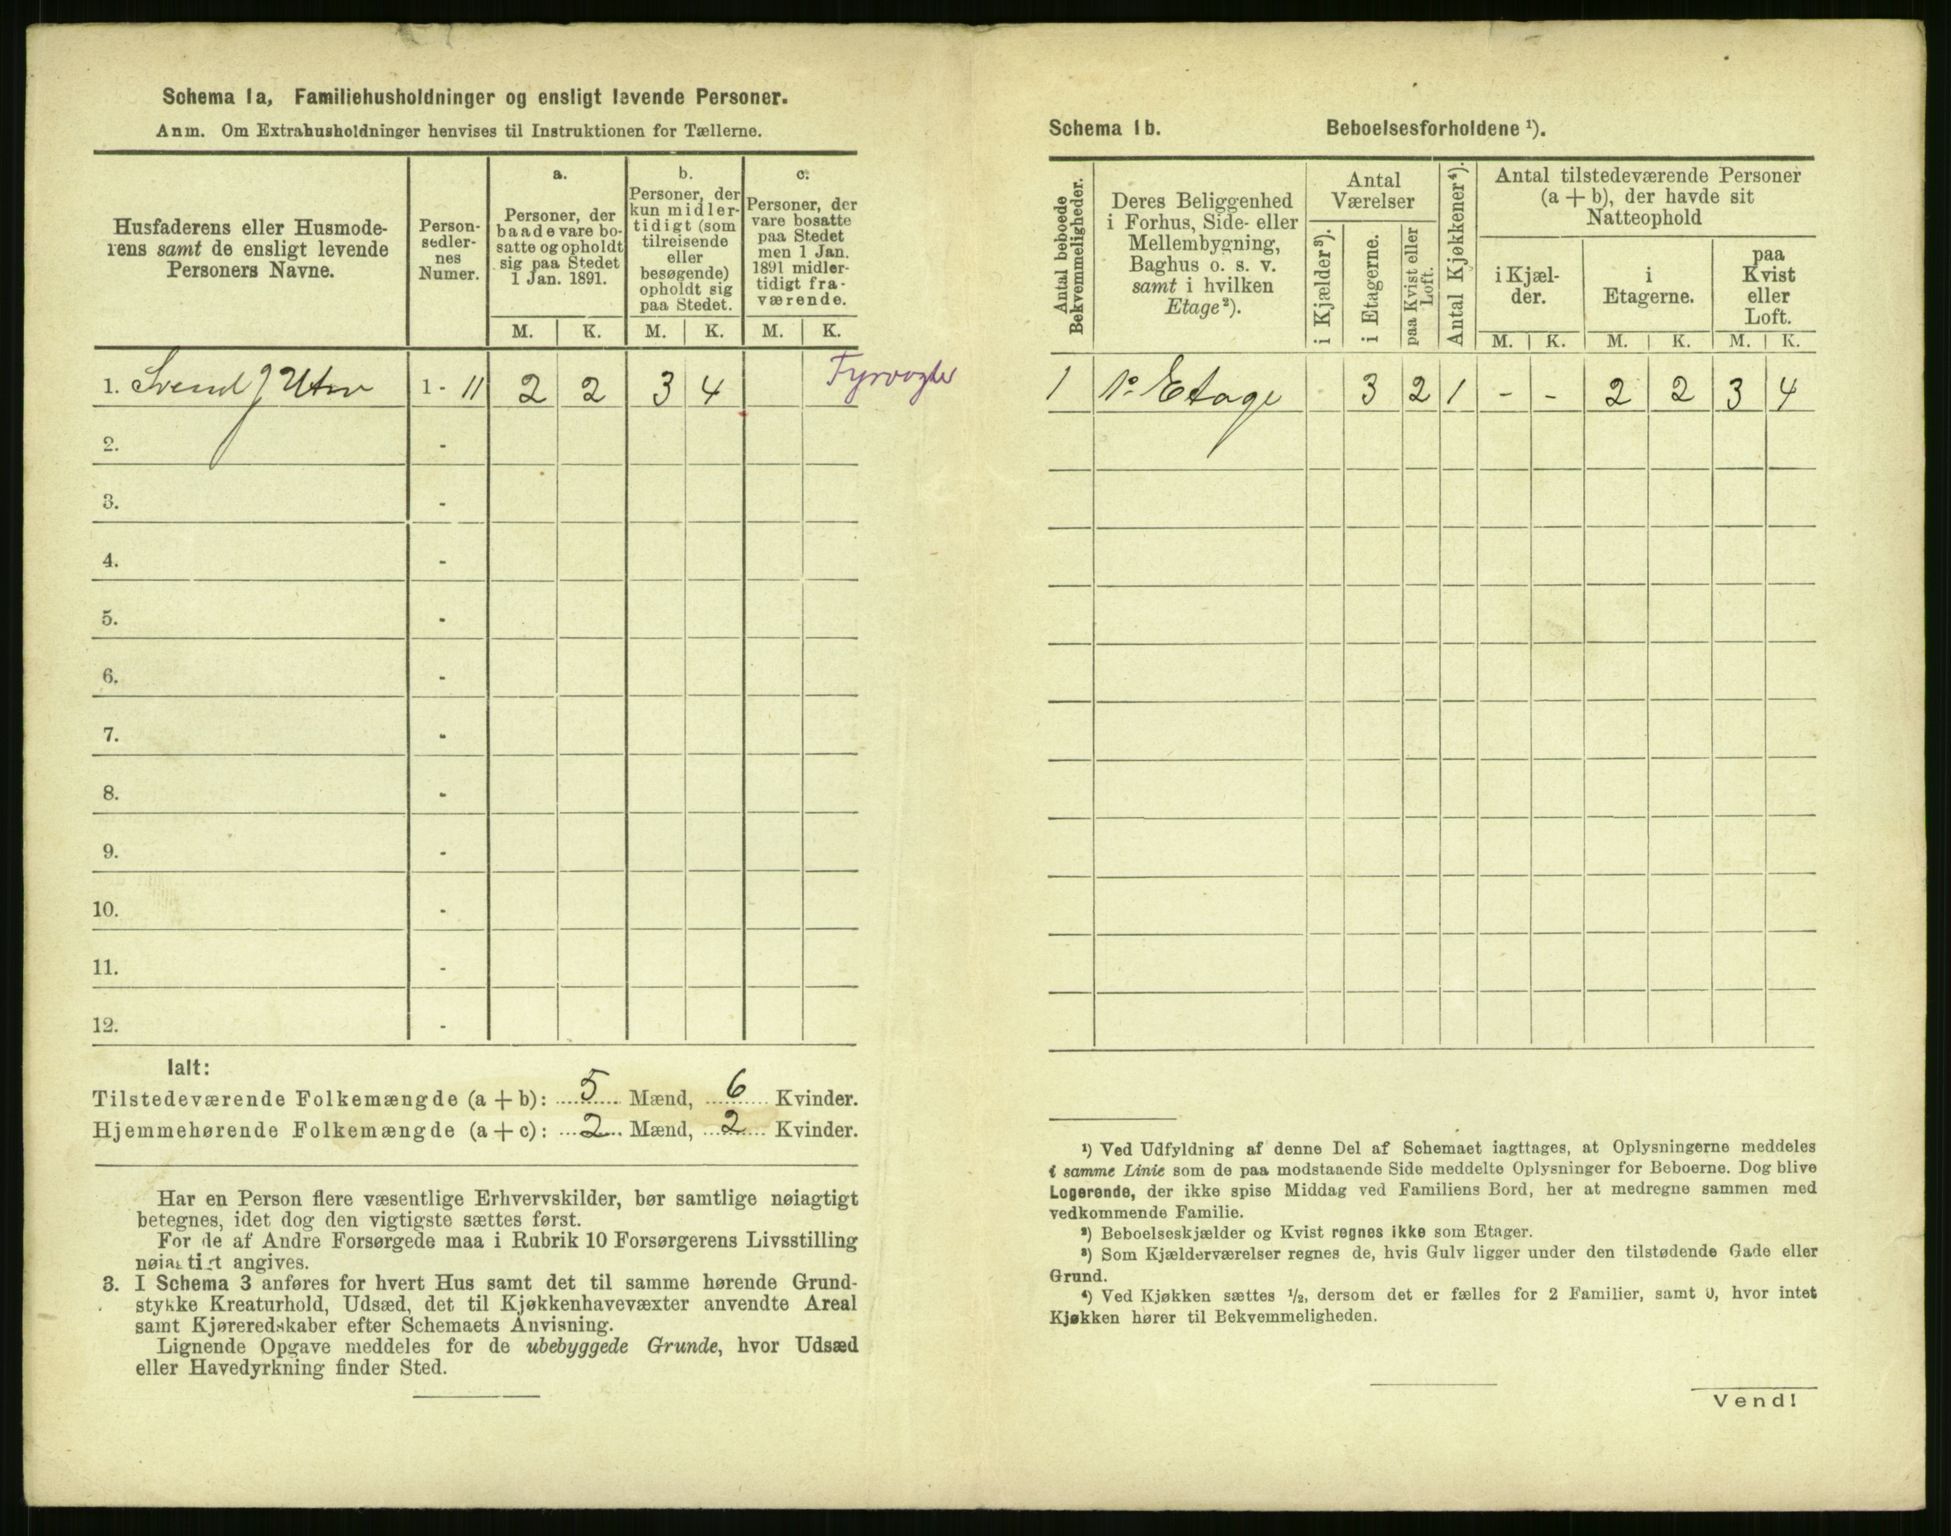 Schema 1a, Familiehusholdninger og ensligt levende Personer.
Anm. Om Extrahusholdninger henvises til Instruktionen for Tællerne.
Husfaderens eller Husmode-
rens samt de ensligt levende
Personers Navne.
Person-
sedler-
nes
Numer.
a.
Personer, der
baade vare bo-
satte og opholdt
sig paa Stedet
1 Jan. 1891.
b.
Personer, der
kun midler-
tidigt (som
tilreisende
eller
besøgende)
opholdt sig
paa Stedet.
c.
Personer, der
vare bosatte
paa Stedet
men 1 Jan.
1891 midler-
tidigt fra-
værende.
M. K. M. K. M. K.
1. Svend J Utne 1 - 11 2 2 3 4 Fyrvogter
2. -
3. -
4. -
5. -
6. -
7. -
8. -
9. -
10. -
11. -
12. -
Ialt:
Tilstedeværende Folkemængde (a + b): 5 Mænd, 6 Kvinder.
Hjemmehørende Folkemængde (a + c): 2 Mænd, 2 Kvinder.
Har en Person flere væsentlige Erhvervskilder, bør samtlige nøiagtigt
betegnes, idet dog den vigtigste sættes først.
For de af Andre Forsørgede maa i Rubrik 10 Forsørgerens Livsstilling
nøiagtigt angives.
3. I Schema 3 anføres for hvert Hus samt det til samme hørende Grund-
stykke Kreaturhold, Udsæd, det til Kjøkkenhavevæxter anvendte Areal
samt Kjøreredskaber efter Schemaets Anvisning.
Lignende Opgave meddeles for de ubebyggede Grunde, hvor Udsæd
eller Havedyrkning finder Sted.
Schema 1b. Beboelsesforholdene ¹).
Antal beboede
Bekvemmeligheder.
Deres Beliggenhed
i Forhus, Side- eller
Mellembygning,
Baghus o. s. v.
samt i hvilken
Etage²).
Antal
Værelser
i Kjælder³).
i Etagerne.
paa Kvist eller
Loft.
Antal Kjøkkener⁴).
Antal tilstedeværende Personer
(a + b), der havde sit
Natteophold
i Kjæl-
der.
i
Etagerne.
paa
Kvist
eller
Loft.
M. K. M. K. M. K.
1 1ᵒ Etage - 3 2 1 - - 2 2 3 4
¹) Ved Udfyldning af denne Del af Schemaet iagttages, at Oplysningerne meddeles
i samme Linie som de paa modstaaende Side meddelte Oplysninger for Beboerne. Dog blive
Logerende, der ikke spise Middag ved Familiens Bord, her at medregne sammen med
vedkommende Familie.
²) Beboelseskjælder og Kvist regnes ikke som Etager.
³) Som Kjælderværelser regnes de, hvis Gulv ligger under den tilstødende Gade eller
Grund.
⁴) Ved Kjøkken sættes ½, dersom det er fælles for 2 Familier, samt 0, hvor intet
Kjøkken hører til Bekvemmeligheden.
Vend!